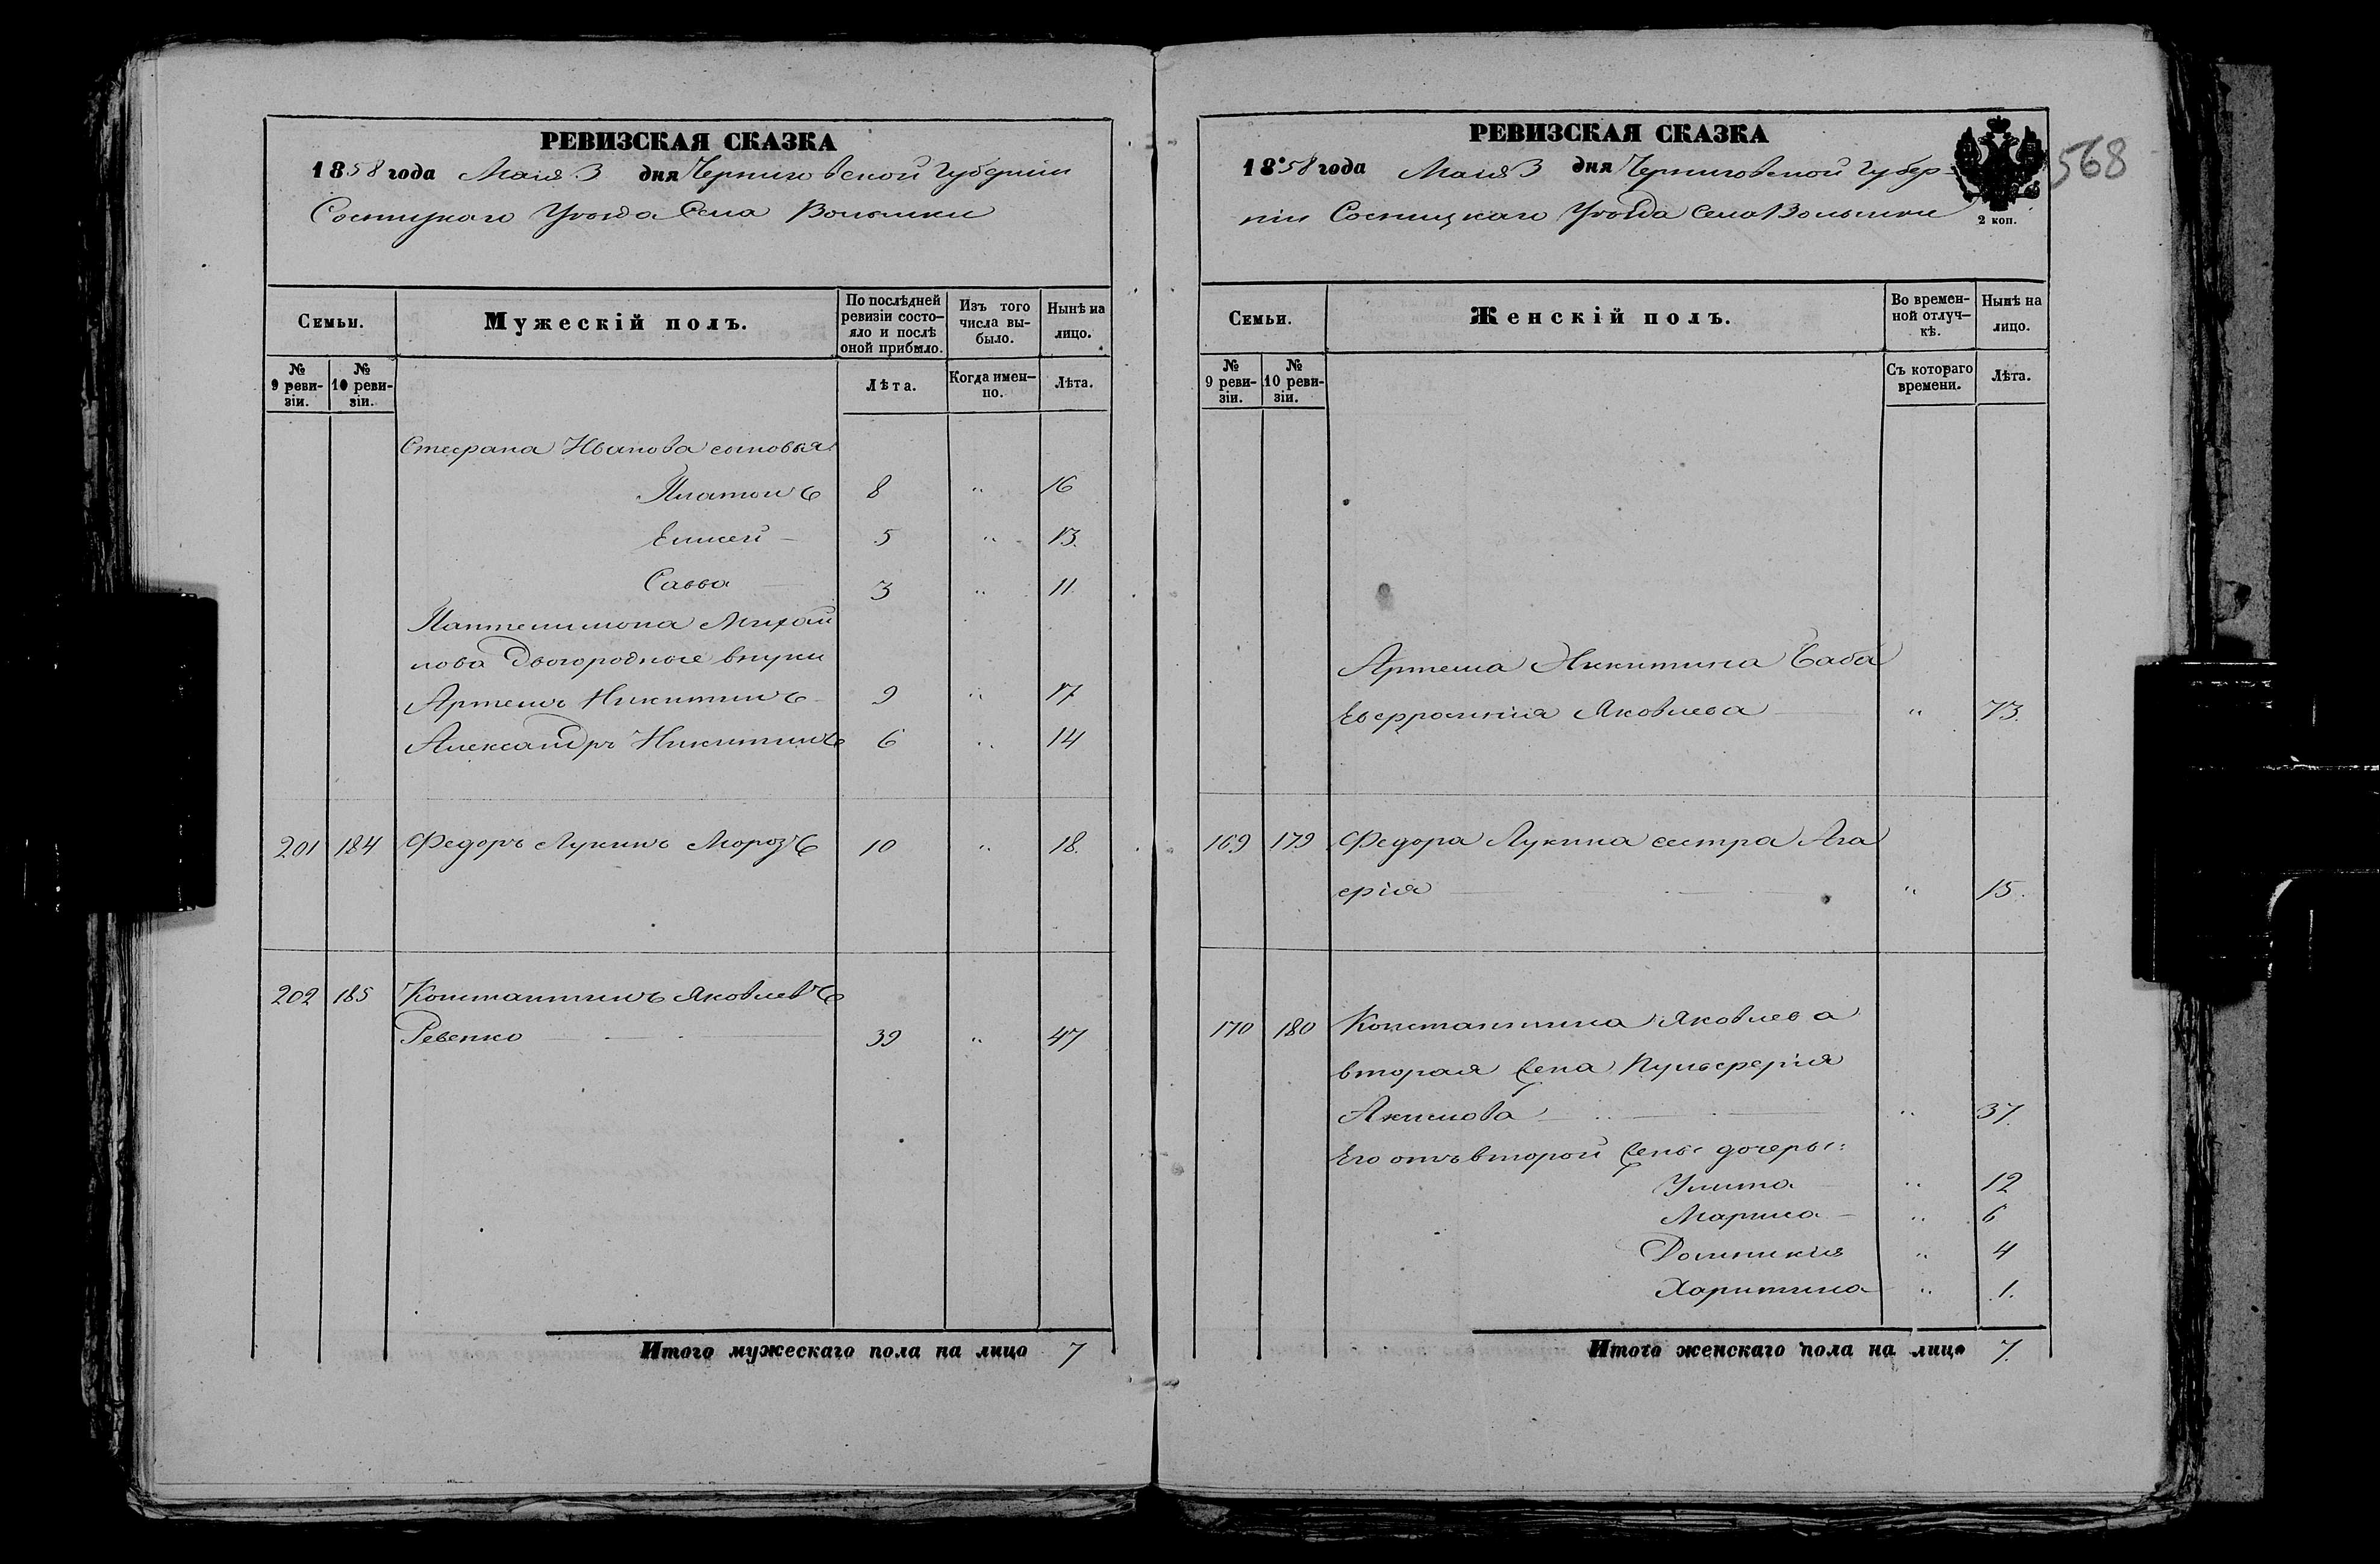 РЕВИЗСКАЯ СКАЗКА
1858 года Маія 3 дня Черниговской Губерніи
Сосницкаго Уѣзда Села Волынки
Семьи.
Мужескій полъ.
По послѣдней ревизіи состояло и послѣ оной прибыло.
Изъ того числа выбыло.
Нынѣ на лицо.
№ 9 ревизіи.
№ 10 ревизіи.
Лѣта.
Когда именно.
Лѣта.
Стефана Иванова сыновья
Платонъ 8 " 16
Елисей 5 " 13.
Савва 3 " 11
Пантелимона Михай
лова двоюродные внуки
Артемъ Никитинъ 9 " 17
Александръ Никитинъ 6 " 14
201 184 Федоръ Лукинъ Морозъ 10 " 18.
202 185 Константинъ Яковлевъ
Ревенко 39 " 47
Итого мужескаго пола на лицо 7
РЕВИЗСКАЯ СКАЗКА
1858 года Маія 3 дня Черниговской Губер-
ніи Сосницкаго Уѣзда Села Волынки
2 коп.
568
Семьи.
Женскій полъ.
Во временной отлучкѣ.
Нынѣ на лицо.
№ 9 ревизіи.
№ 10 ревизіи.
Съ котораго времени.
Лѣта.
Артема Никитина баба
Евфросинія Яковлева " 73.
169 179 Федора Лукина сестра Ага
фія " 15.
170 180 Константина Яковлева
вторая жена Пульферія
Акимова " 37.
Его отъ второй жены дочеры:
Улита " 12
Марина " 6
Домникія " 4
Харитина " 1.
Итого женскаго пола на лицо 7.